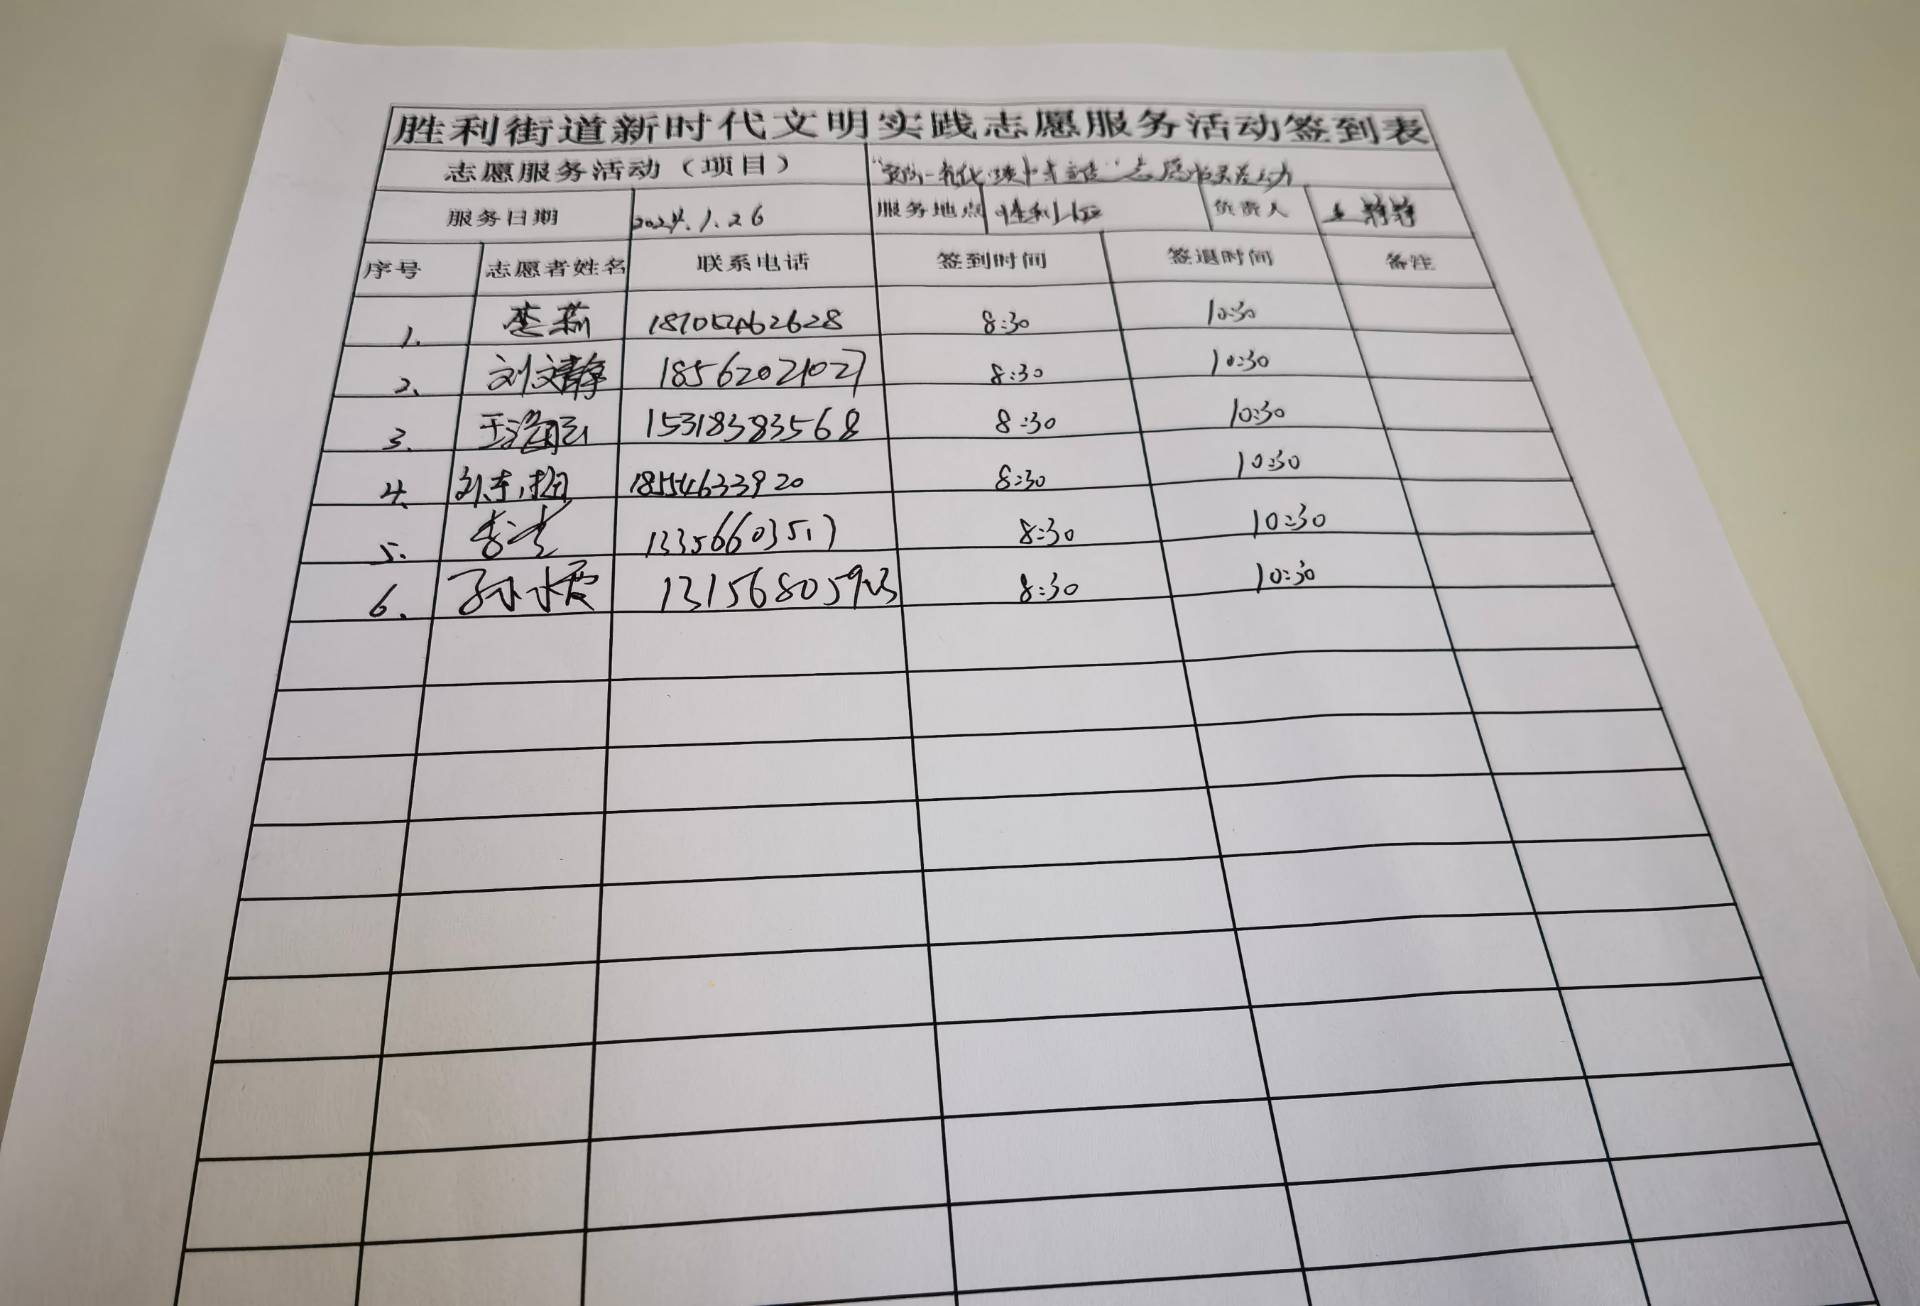 胜利街道新时代文明实践志愿服务活动签到表
志愿服务活动（项目） "预防一氧化碳中毒宣传"志愿服务活动
服务日期 2024.1.26 服务地点 胜利社区 负责人 王静静
序号 志愿者姓名 联系电话 签到时间 签退时间 备注
1. 李燕 8:30 10:30
2. 刘文静 18562021027 8:30 10:30
3. 15318383568 8:30 10:30
4. 18554633920 8:30 10:30
5. 13356603517 8:30 10:30
6. 8:30 10:30